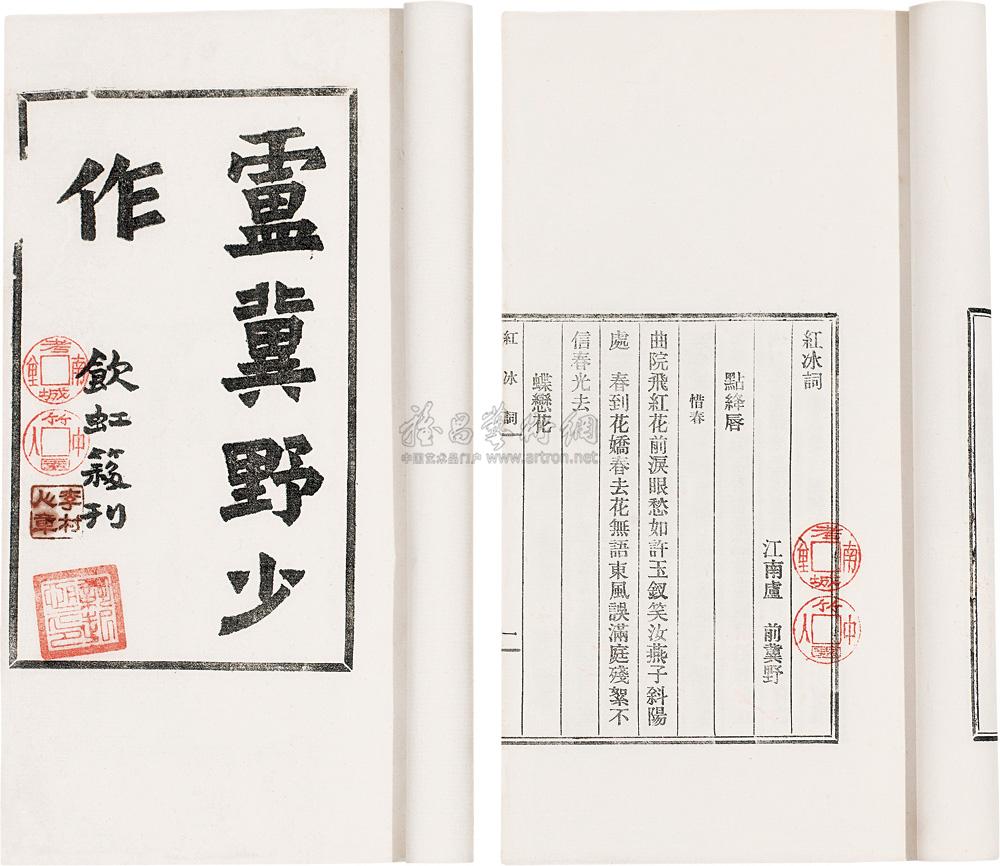 盧冀野少
作
飲虹簃刊
李村
心章
紅冰詞
江南盧 前冀野
點絳唇
惜春
曲院飛紅花前淚眼愁如許玉釵笑汝燕子斜陽
處 春到花嬌春去花無語東風誤滿庭殘絮不
信春光去
蝶戀花
紅冰詞
一
中国艺术品门户 www.artron.net